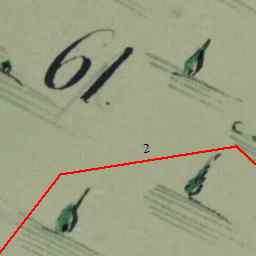 61
2